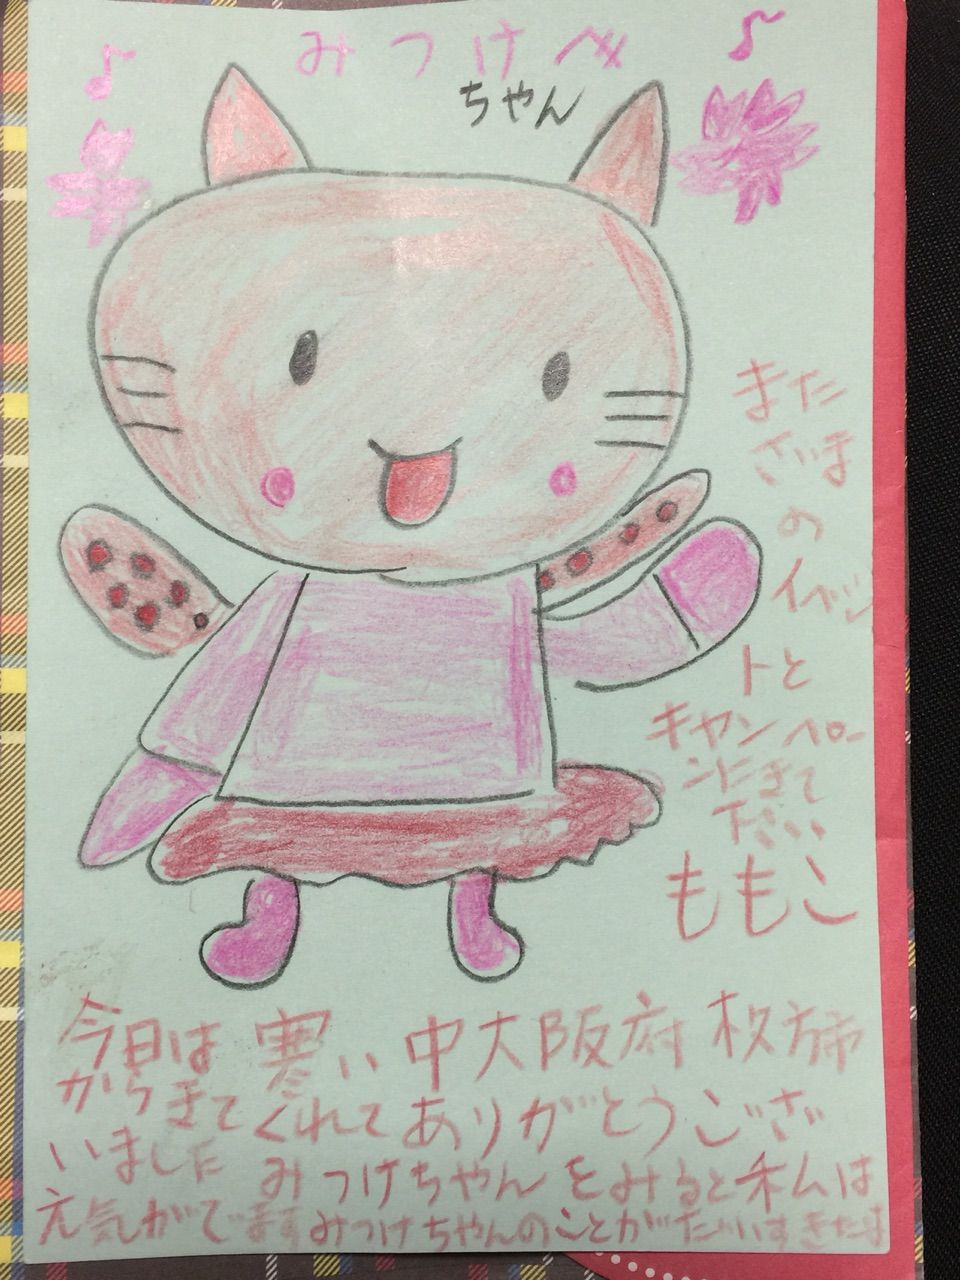 みつけ
ちゃん
また
さいまの
イベン
トと
キャンペー
ンにきて
下さい
ももこ
今日は寒い中大阪府枚方市
からきてくれてありがとうござ
いました みつけちゃんをみると私は
元気がでますみつけちゃんのことがだいすきだよ